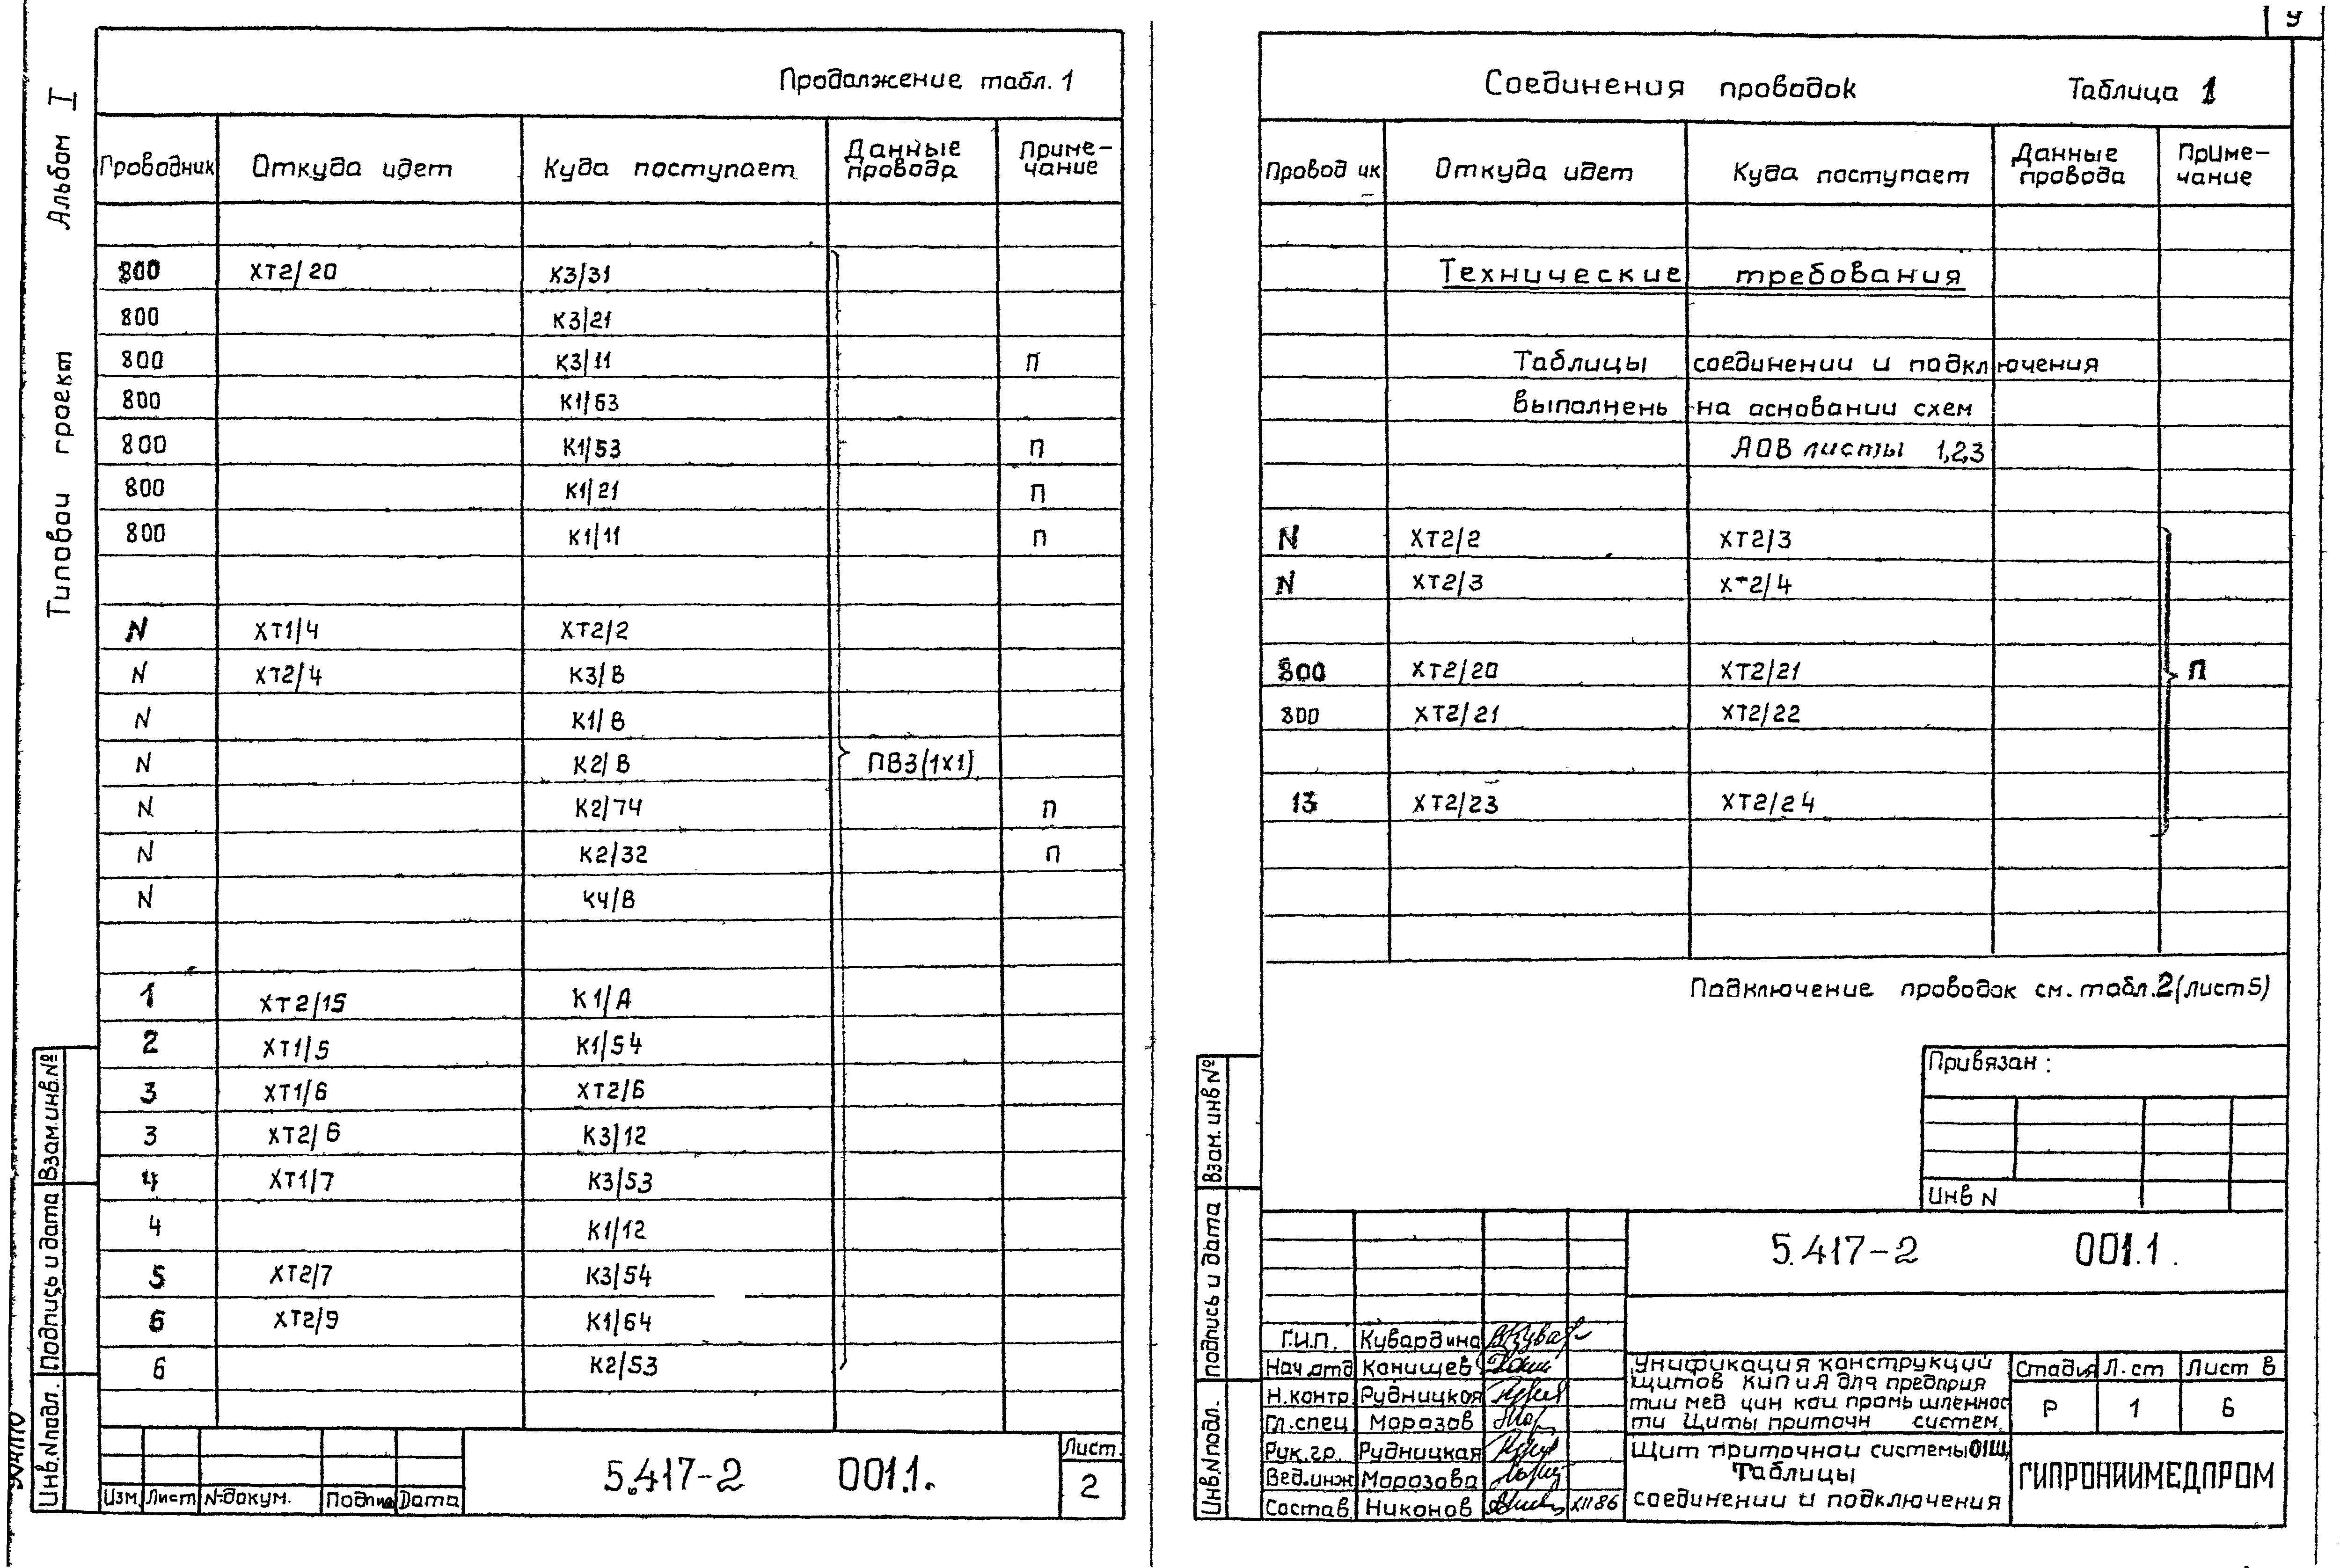 Альбом I
Типовои проект
Продалжение табл. 1
Проводник Откуда идет Куда поступает Данные провода Приме-чание
800 ХТ2/20 К3/31
800 К3/21
800 К3/11 П
800 К1/63
800 К1/53 П
800 К1/21 П
800 К1/11 П
N ХТ1/4 ХТ2/2
N ХТ2/4 К3/В
N К1/В
N К2/В ПВ3(1х1)
N К2/74 П
N К2/32 П
N К4/В
1 ХТ2/15 К1/А
2 ХТ1/5 К1/54
3 ХТ1/6 ХТ2/6
3 ХТ2/6 К3/12
4 ХТ1/7 К3/53
4 К1/12
5 ХТ2/7 К3/54
6 ХТ2/9 К1/64
6 К2/53
Взам.инв.№
Подпись и дата
Инв.N подл.
Изм. Лист N-докум. Подпись Дата
5.417-2 001.1.
Лист
2
Соединения проводок Таблица 1
Провод ик Откуда идет Куда поступает Данные провода Приме-чание
Технические требования
Таблицы соединении и подключения
выполнень на основании схем
АОВ листы 1,2,3
N ХТ2/2 ХТ2/3
N ХТ2/3 ХТ2/4
800 ХТ2/20 ХТ2/21 П
800 ХТ2/21 ХТ2/22
13 ХТ2/23 ХТ2/24
Подключение проводок см. табл.2 (лист 5)
Привязан:
Инв N
Взам. инв №
подпись и дата
Инв.N подл.
5.417-2 001.1.
Г.И.П. Кувардина
Нач.отд Канищев
Н.контр. Рудницкая
Гл.спец Марозов
Рук.гр. Рудницкая
Вед.инж Марозова
Состав. Никонов XII 86
Унификация конструкций
щитов КИП и А для предприя
тии мед цин каи промышленнос
ти Щиты приточн систем.
Стадия Л.ст Лист в
Р 1 6
Щит приточнои системы 01Щ,
Таблицы
соединении и подключения
ГИПРОНИИМЕДПРОМ